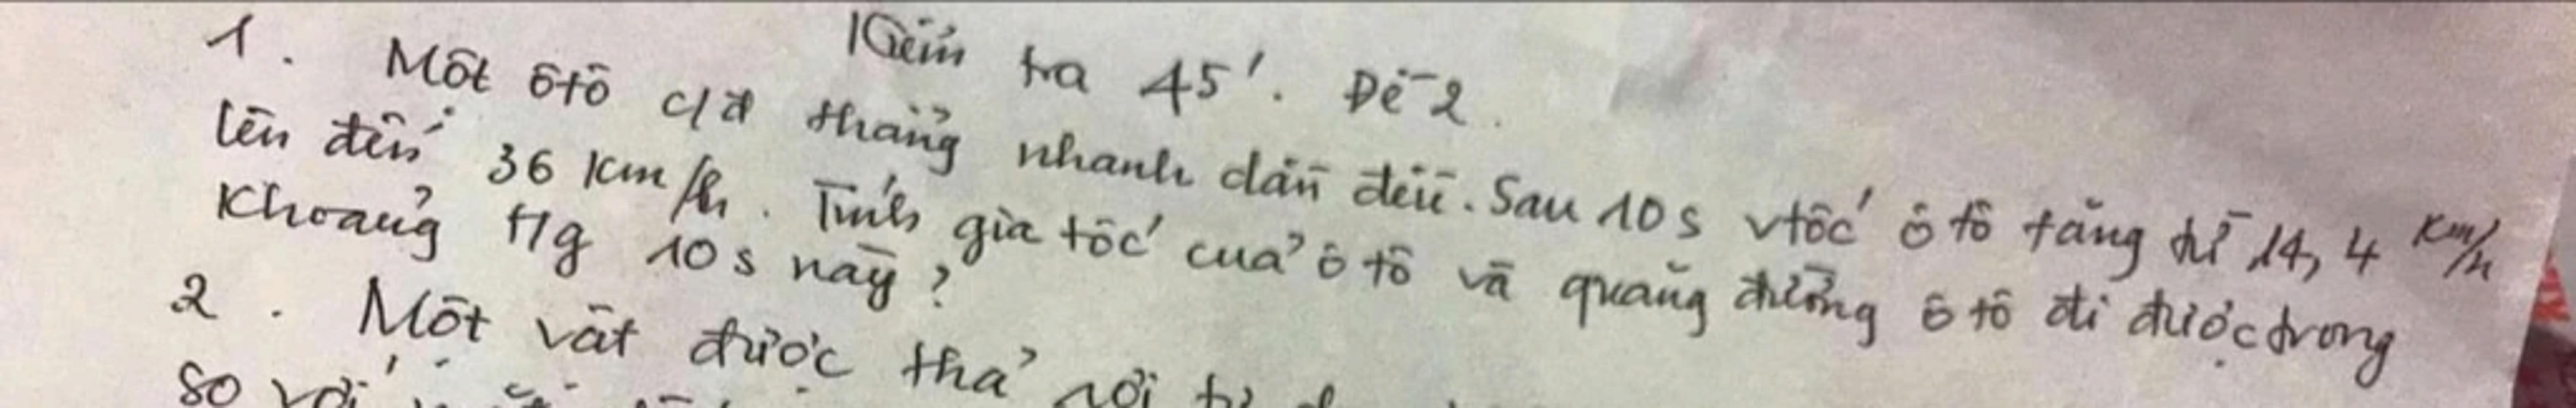 Kiểm tra 45'. Đề 2.
1. Một ôtô c/đ thẳng nhanh dần đều. Sau 10s vtốc ô tô tăng từ 14,4 km/h
lên đến 36 km/h. Tính gia tốc của ô tô và quãng đường ô tô đi được trong
khoảng t/g 10s này?
2. Một vật được thả rơi tự
so với